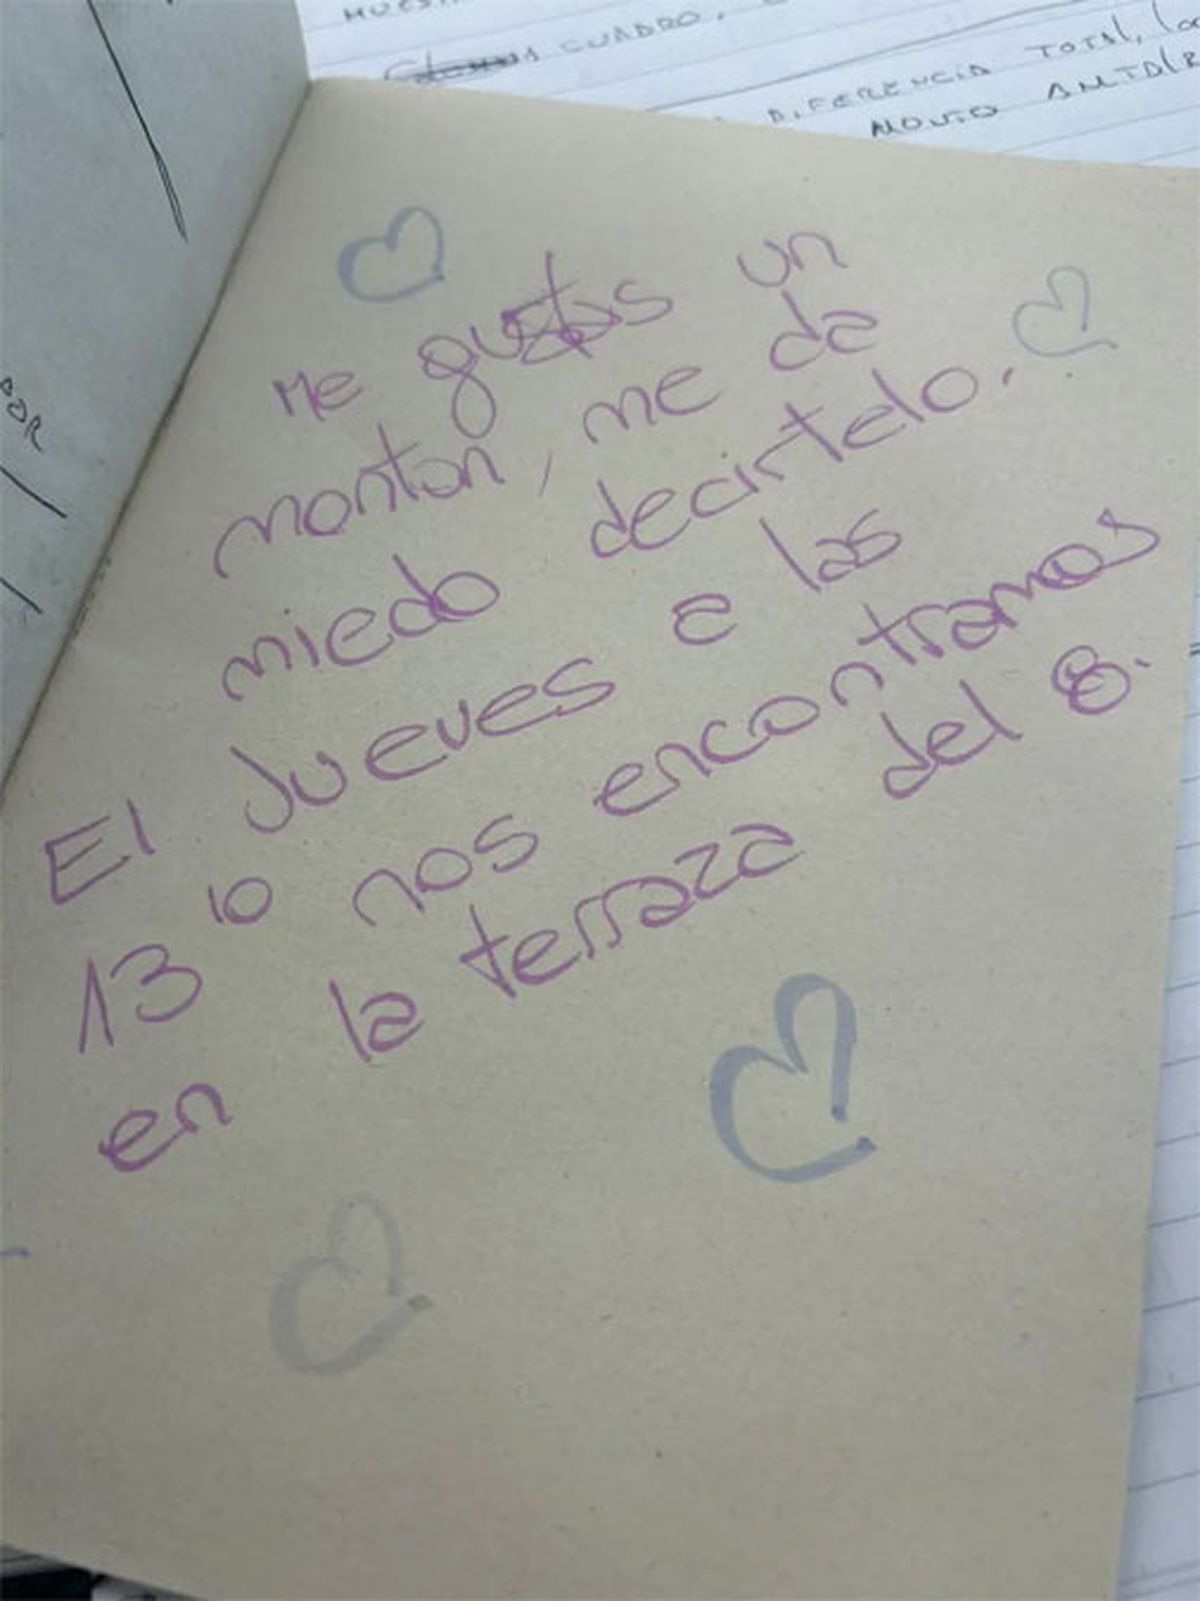 MUESTR
CUADRO.
DIFERENCIA TOTAL, los
MONTO
POR
Me gustas un
monton, me da
miedo decirtelo.
El Jueves a las
13 10 nos encontramos
en la terraza del 8.